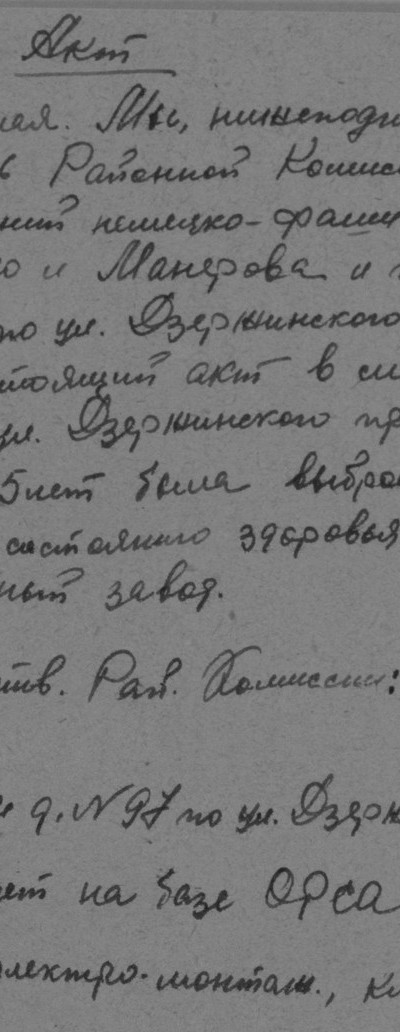 Акт
ная. Мы, нижеподп
в Районной Комисс
ний немецко-фаши
о и Манерова и
по ул. Дзержинского
стоящий акт в
ул. Дзержинского пр
5 лет была выбро
состоянию здоровья
ный завод.
тв. Рай. Комиссии:
д. N 97 по ул. Дзерж
ет на базе ОРСа
электро-монтаж., к